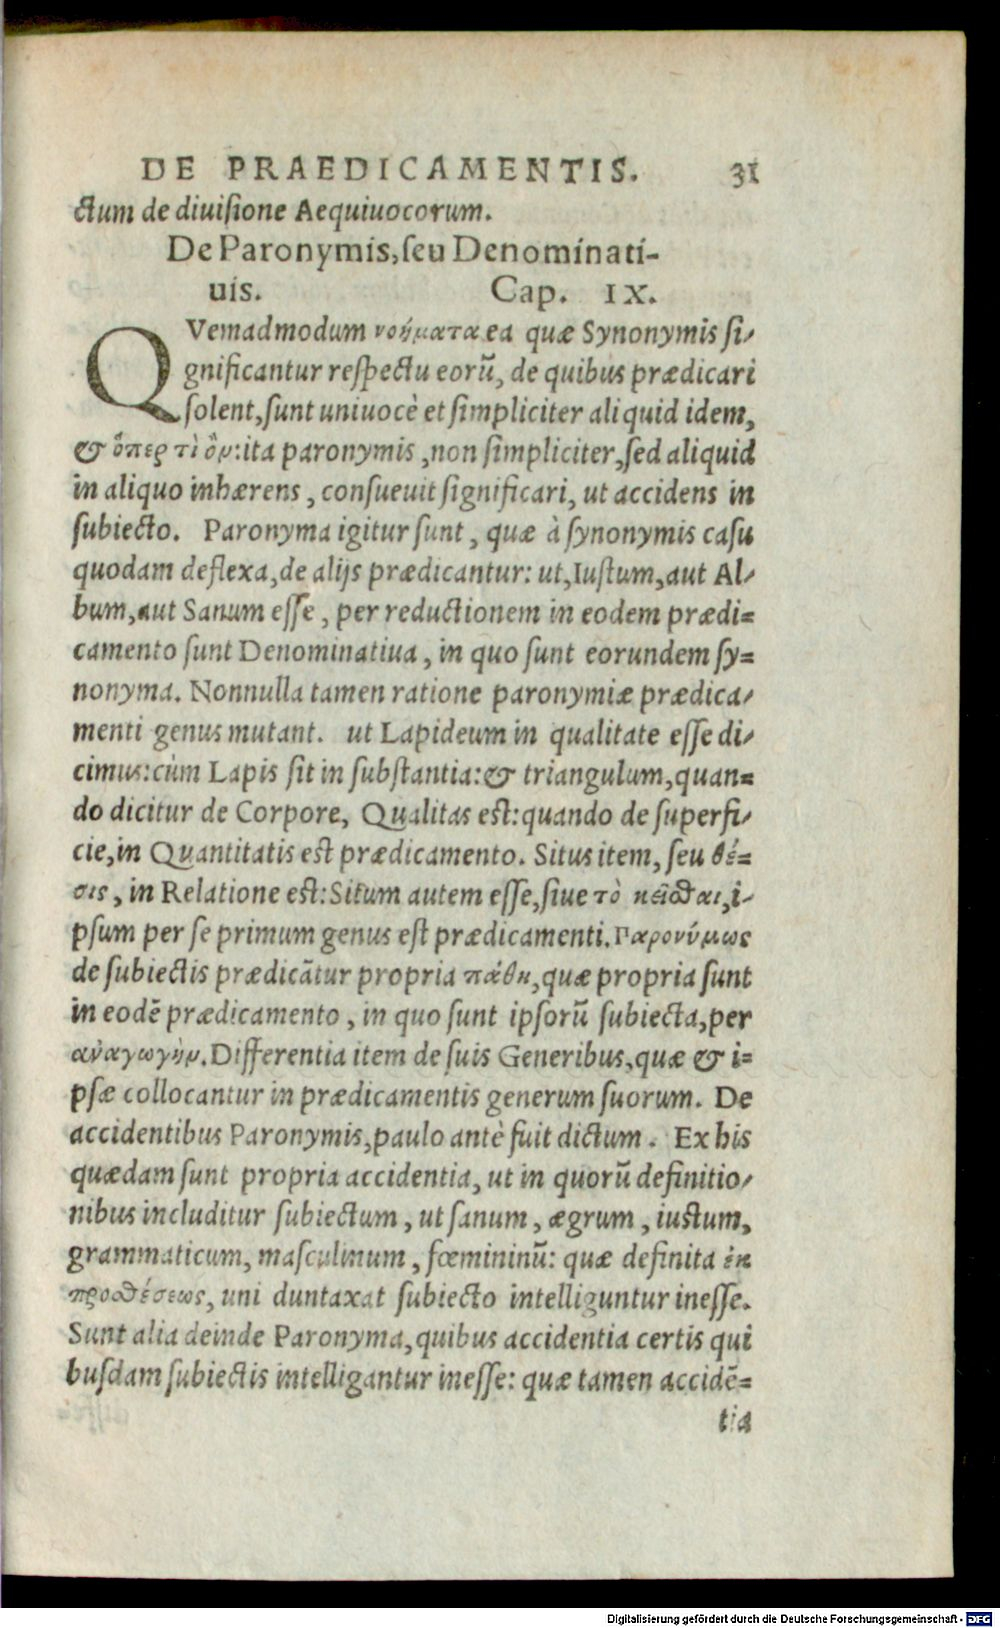 DE PRAEDICAMENTIS. 31
ctum de diuisione Aequiuocorum.
De Paronymis, seu Denominati-
uis. Cap. IX.
QVemadmodum νοήματα ea quæ Synonymis si-
gnificantur respectu eorũ, de quibus prædicari
solent, sunt uniuocè et simpliciter aliquid idem,
& ὅπερ τὶ ὄν: ita paronymis, non simpliciter, sed aliquid
in aliquo inhærens, consueuit significari, ut accidens in
subiecto. Paronyma igitur sunt, quæ à synonymis casu
quodam deflexa, de alijs prædicantur: ut, Iustum, aut Al-
bum, aut Sanum esse, per reductionem in eodem prædi=
camento sunt Denominatiua, in quo sunt eorundem sy=
nonyma. Nonnulla tamen ratione paronymiæ prædica-
menti genus mutant. ut Lapideum in qualitate esse di-
cimus: cùm Lapis sit in substantia: & triangulum, quan=
do dicitur de Corpore, Qualitas est: quando de superfi-
cie, in Quantitatis est prædicamento. Situs item, seu θέ=
σις, in Relatione est: Situm autem esse, siue τὸ κεῖσθαι, i-
psum per se primum genus est prædicamenti. Παρονύμως
de subiectis prædicãtur propria πάθη, quæ propria sunt
in eodẽ prædicamento, in quo sunt ipsorũ subiecta, per
ἀναγωγὴν. Differentia item de suis Generibus, quæ & i=
psæ collocantur in prædicamentis generum suorum. De
accidentibus Paronymis, paulo antè fuit dictum. Ex his
quædam sunt propria accidentia, ut in quorũ definitio-
nibus includitur subiectum, ut sanum, ægrum, iustum,
grammaticum, masculinum, fœmininũ: quæ definita ἐκ
προσθέσεως, uni duntaxat subiecto intelliguntur inesse.
Sunt alia deinde Paronyma, quibus accidentia certis qui
busdam subiectis intelligantur inesse: quæ tamen accidẽ=
tia
Digitalisierung gefördert durch die Deutsche Forschungsgemeinschaft - DFG